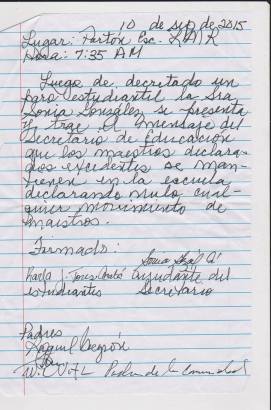 10 de sep de 2015
Lugar: Portón Esc.
Hora: 7:35 AM
Luego de decretado un
paro estudiantil la Sra.
Sonia González se presenta
y trae el mensaje del
Secretario de Educación
que los maestros declara-
dos excedentes se man-
tienen en la escuela
declarando nulo cual-
quier movimiento de
maestros.
Firmado:
Karla J. ayudante del
estudiantes Secretario
Padres
Raquel Negrón
Padre de la Comunidad